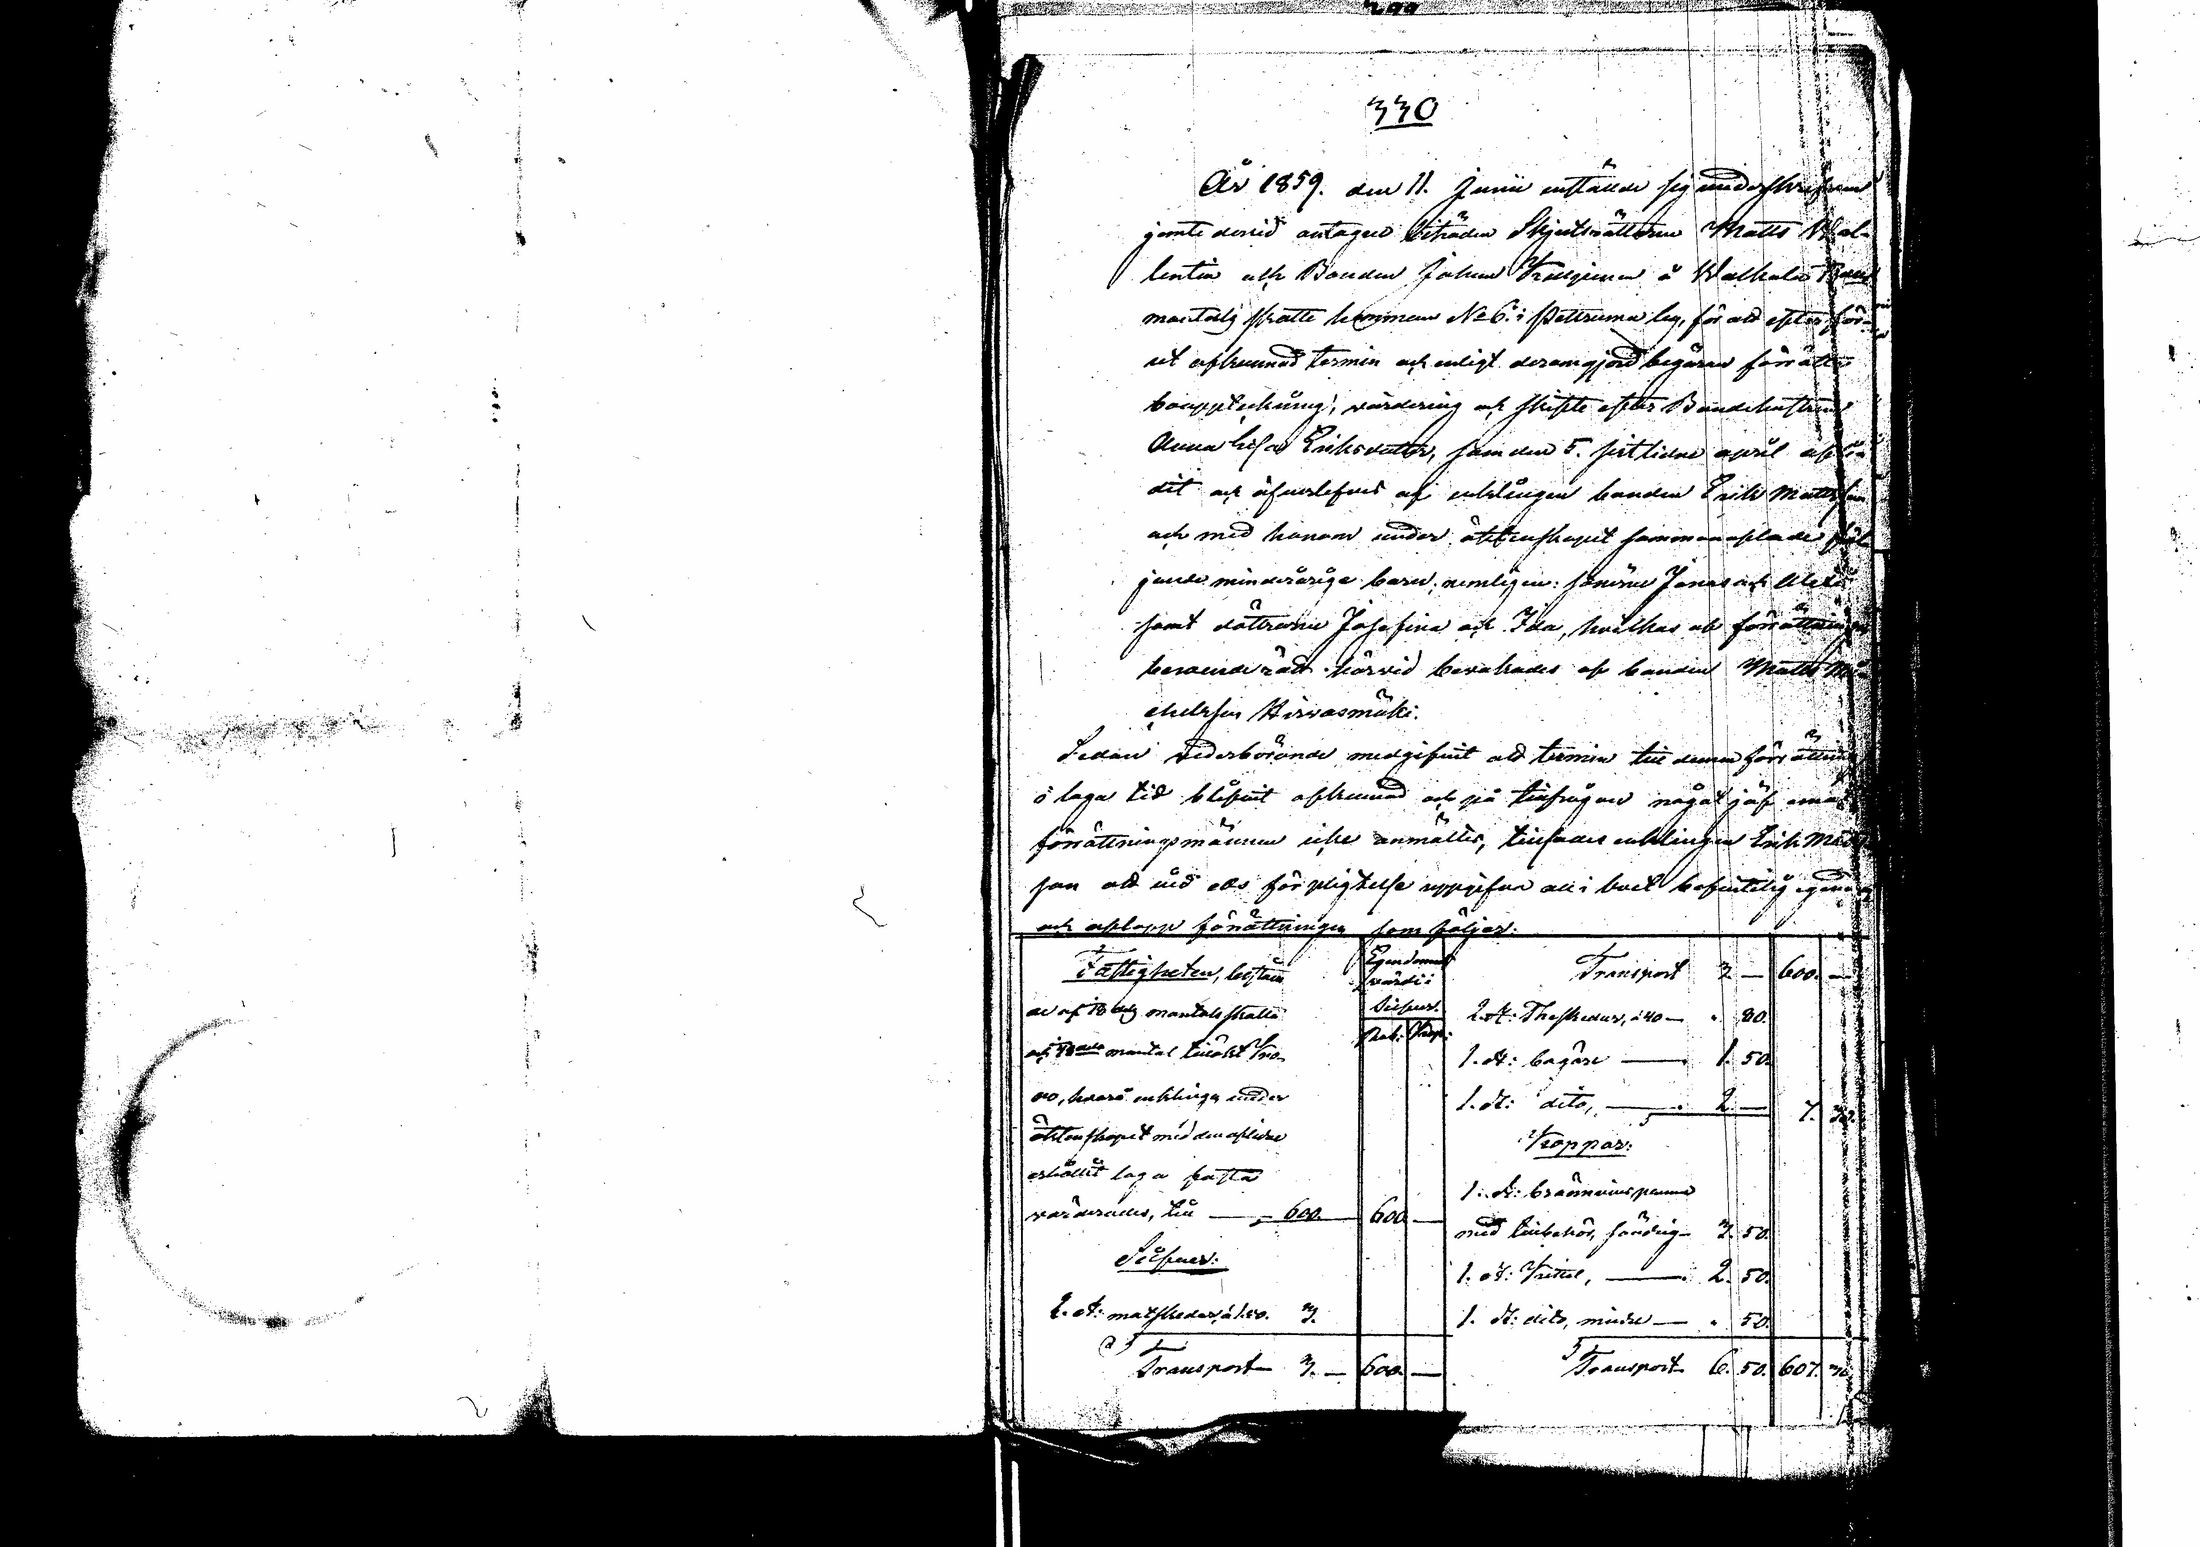 330
År 1859. den 11. Junii instälde sig undertecknad
jemte dervid antagne biträden Skjutsrättaren Matts Wal-
lentin och Bonden Johan på Walkala
mantals skatte hemman No 6. i by, för att efter för-
ut afkunnad termin och enligt deromgjord begäran förrätta
bouppteckning, värdering och skifte efter Bondehustrun
Anna Lisa Eriksdotter, som den 5. sistlidne april afli-
dit och öfverlefves af enklingen bonden Erik Mattsson
och med honom under äktenskapet sammanaflade föl-
jande minderåriga barn, nemligen: sönerne Jonas och
samt döttrarne Josefina och Ida, hvilkas af förrättningen
beroende rätt härvid bevakades af bonden Matts Mi-
chelsson Hirvasmäki.
Sedan vederbörande medgifvit att termin till denna förrättning
i laga tid blifvit afkunnad och på tillfrågan något jäf emot
förrättningsmännen icke anmältes, tillsades enklingen Erik Matts-
son att vid eds förpligtelse uppgifva all i boet befintelig egendom
och aflopp förrättningen som följer:
Fastigheten, bestå-
de af mantals skatte
och mantal
no, hvarå enklingen under
äktenskapet med den aflidne
erhållit laga fasta
värderades, till — 600. 600 —
Silfver:
2. st: matskedar, à 1.50. 3.
Transport 3. — 600. —
Egendomens
värde i
Silfver.
Rub. Kop.
Transport 3 — 600. —
2. st: Theskedar, à 40 — . 80.
1. st: bägare — 1. 50.
1. st: dito, — 2 — 7. 30.
Koppar:
1. st: brännvinspanna
med tillbehör, 3. 50.
1. st: Kittel, — 2. 50.
1. st: dito, mindre — . 50.
Transport 6. 50. 607. 30.